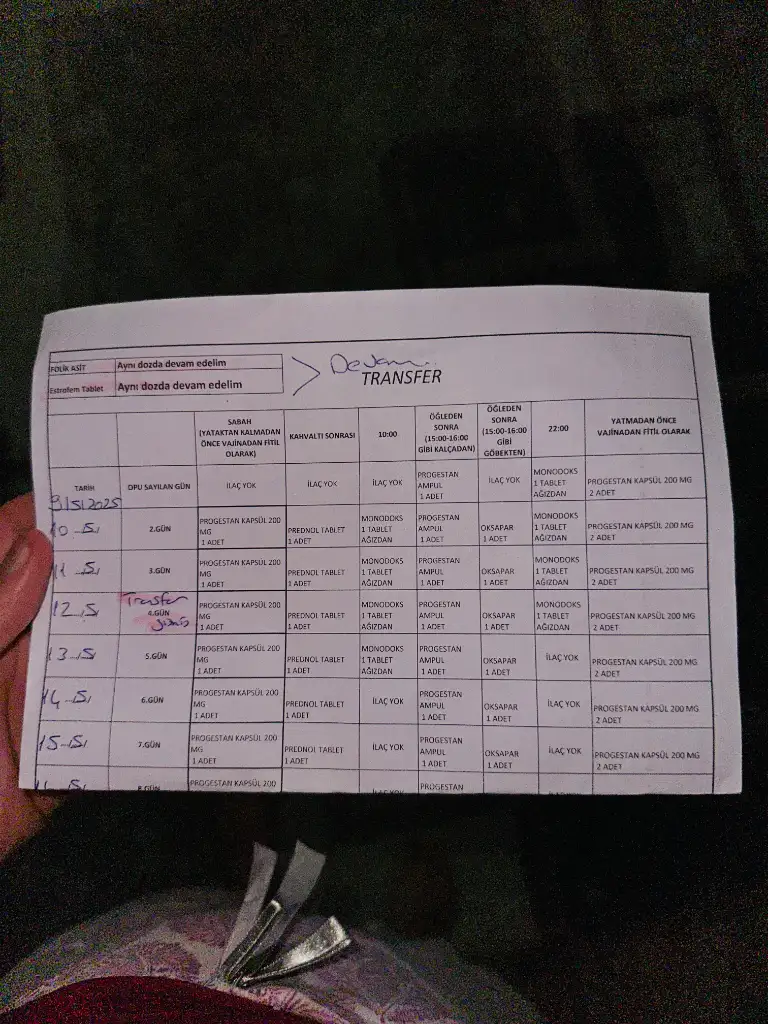 FOLİK ASİT Aynı dozda devam edelim
Estrofem Tablet Aynı dozda devam edelim
Devam..
TRANSFER
TARİH
OPU SAYILAN GÜN
SABAH
(YATAKTAN KALMADAN
ÖNCE VAJİNADAN FİTİL
OLARAK)
KAHVALTI SONRASI
10:00
ÖĞLEDEN
SONRA
(15:00-16:00
GİBİ KALÇADAN)
ÖĞLEDEN
SONRA
(15:00-16:00
GİBİ
GÖBEKTEN)
22:00
YATMADAN ÖNCE
VAJİNADAN FİTİL OLARAK
9/5/2025
İLAÇ YOK
İLAÇ YOK
İLAÇ YOK
PROGESTAN
AMPUL
1 ADET
İLAÇ YOK
MONODOKS
1 TABLET
AĞIZDAN
PROGESTAN KAPSÜL 200 MG
2 ADET
10-5
2.GÜN
PROGESTAN KAPSÜL 200
MG
1 ADET
PREDNOL TABLET
1 ADET
MONODOKS
1 TABLET
AĞIZDAN
PROGESTAN
AMPUL
1 ADET
OKSAPAR
1 ADET
MONODOKS
1 TABLET
AĞIZDAN
PROGESTAN KAPSÜL 200 MG
2 ADET
11-5
3.GÜN
PROGESTAN KAPSÜL 200
MG
1 ADET
PREDNOL TABLET
1 ADET
MONODOKS
1 TABLET
AĞIZDAN
PROGESTAN
AMPUL
1 ADET
OKSAPAR
1 ADET
MONODOKS
1 TABLET
AĞIZDAN
PROGESTAN KAPSÜL 200 MG
2 ADET
12-5
Transfer
4.GÜN
günü
PROGESTAN KAPSÜL 200
MG
1 ADET
PREDNOL TABLET
1 ADET
MONODOKS
1 TABLET
AĞIZDAN
PROGESTAN
AMPUL
1 ADET
OKSAPAR
1 ADET
MONODOKS
1 TABLET
AĞIZDAN
PROGESTAN KAPSÜL 200 MG
2 ADET
13-5
5.GÜN
PROGESTAN KAPSÜL 200
MG
1 ADET
PREDNOL TABLET
1 ADET
MONODOKS
1 TABLET
AĞIZDAN
PROGESTAN
AMPUL
1 ADET
OKSAPAR
1 ADET
İLAÇ YOK
PROGESTAN KAPSÜL 200 MG
2 ADET
14-5
6.GÜN
PROGESTAN KAPSÜL 200
MG
1 ADET
PREDNOL TABLET
1 ADET
İLAÇ YOK
PROGESTAN
AMPUL
1 ADET
OKSAPAR
1 ADET
İLAÇ YOK
PROGESTAN KAPSÜL 200 MG
2 ADET
15-5
7.GÜN
PROGESTAN KAPSÜL 200
MG
1 ADET
PREDNOL TABLET
1 ADET
İLAÇ YOK
PROGESTAN
AMPUL
1 ADET
OKSAPAR
1 ADET
İLAÇ YOK
PROGESTAN KAPSÜL 200 MG
2 ADET
8.GÜN
PROGESTAN KAPSÜL 200
İLAÇ YOK
PROGESTAN